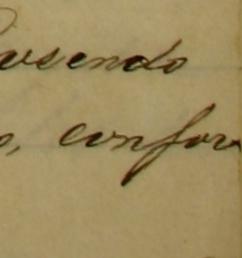 usendo
o, confor